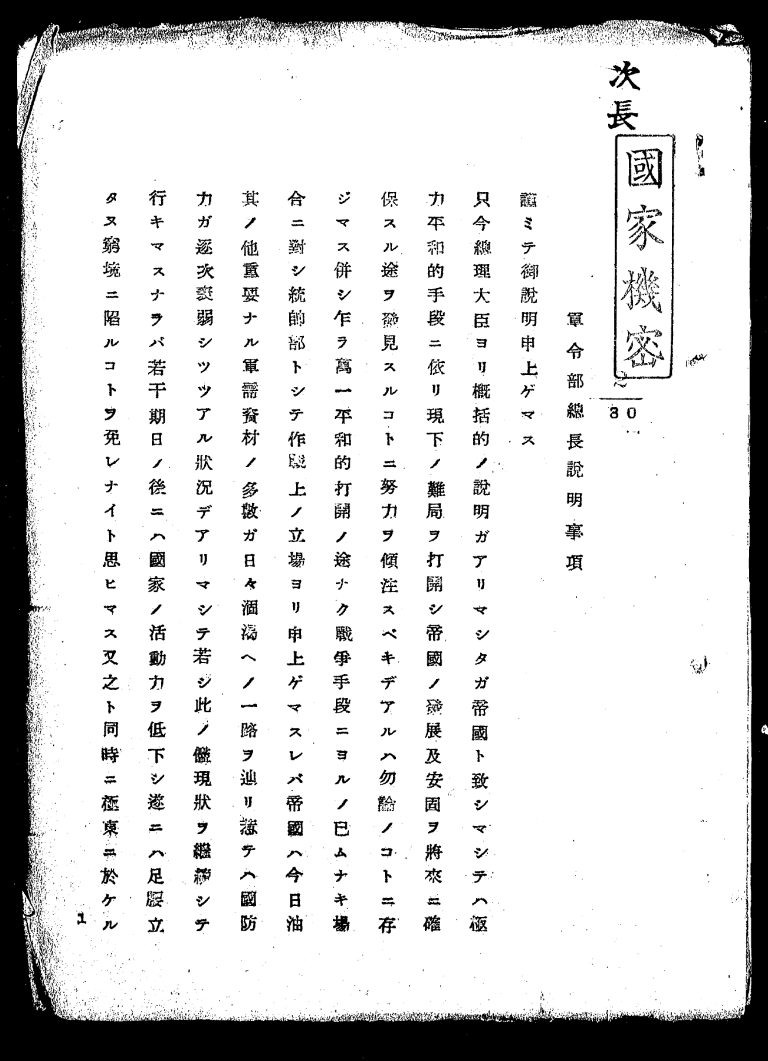 次長
國家機密
2
30
軍令部總長說明事項
謹ミテ御說明申上ゲマス
只今總理大臣ヨリ概括的ノ說明ガアリマシタガ帝國ト致シマシテハ極
力平和的手段ニ依リ現下ノ難局ヲ打開シ帝國ノ發展及安固ヲ將來ニ確
保スル途ヲ發見スルコトニ努力ヲ傾注スベキデアルハ勿論ノコトニ存
ジマス併シ乍ラ萬一平和的打開ノ途ナク戰爭手段ニヨルノ已ムナキ場
合ニ對シ統帥部トシテ作戰上ノ立場ヨリ申上ゲマスレバ帝國ハ今日油
其ノ他重要ナル軍需資材ノ多數ガ日々涸渴ヘノ一路ヲ辿リ惹テハ國防
力ガ逐次衰弱シツツアル狀況デアリマシテ若シ此ノ儘現狀ヲ繼續シテ
行キマスナラバ若干期日ノ後ニハ國家ノ活動力ヲ低下シ遂ニハ足腰立
タヌ窮境ニ陷ルコトヲ免レナイト思ヒマス又之ト同時ニ極東ニ於ケル
1